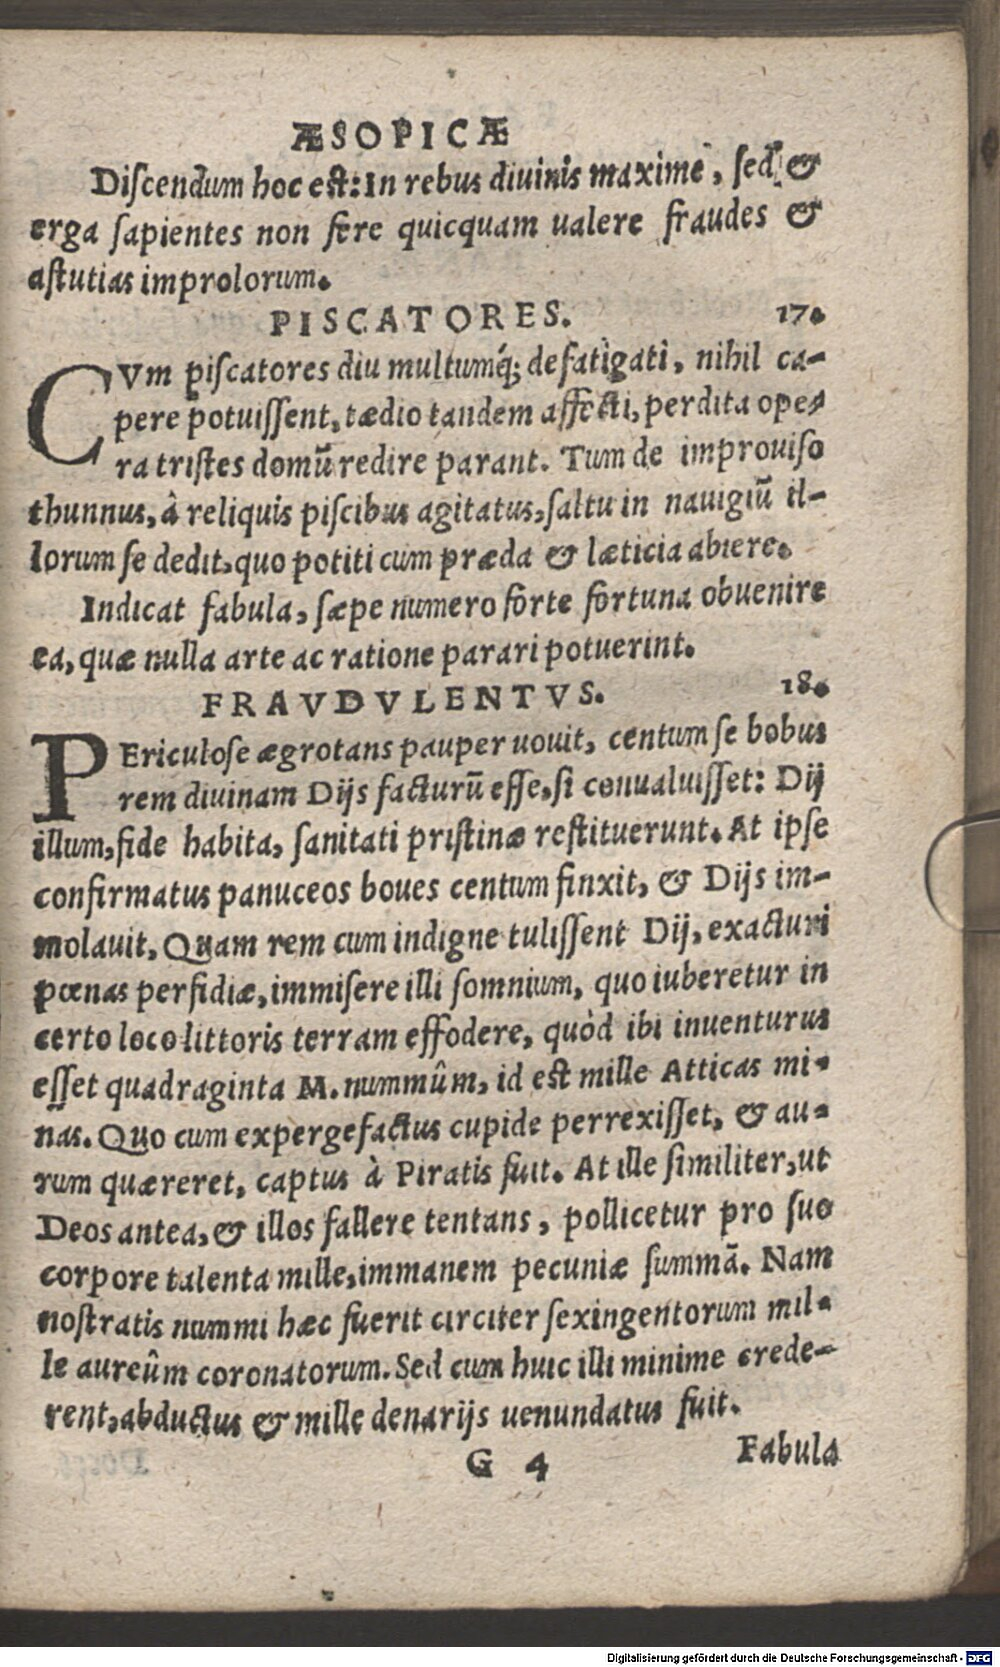 ÆSOPICÆ
Diſcendum hoc eſt: In rebus diuinis maximè, ſed &
erga ſapientes non fere quicquam ualere fraudes &
aſtutias improlorum.
PISCATORES. 17.
CVm piſcatores diu multumq́; defatigati, nihil ca-
pere potuiſſent, tædio tandem affecti, perdita ope-
ra triſtes domũ redire parant. Tum de improuiſo
thunnus, â reliquis piſcibus agitatus, ſaltu in nauigiũ il-
lorum ſe dedit, quo potiti cum præda & læticia abiere.
Indicat fabula, ſæpe numero forte fortuna obuenire
ea, quæ nulla arte ac ratione parari potuerint.
FRAVDVLENTVS. 18.
PEriculoſe ægrotans pauper uouit, centum ſe bobus
rem diuinam Dijs facturũ eſſe, ſi conualuiſſet: Dij
illum, fide habita, ſanitati priſtinæ reſtituerunt. At ipſe
confirmatus panuceos boues centum finxit, & Dijs im-
molauit, Quam rem cum indigne tuliſſent Dij, exacturi
pœnas perfidiæ, immiſere illi ſomnium, quo iuberetur in
certo loco littoris terram effodere, quòd ibi inuenturus
eſſet quadraginta M. nummûm, id eſt mille Atticas mi-
nas. Quo cum expergefactus cupide perrexiſſet, & au-
rum quæreret, captus à Piratis fuit. At ille ſimiliter, ut
Deos antea, & illos fallere tentans, pollicetur pro ſuo
corpore talenta mille, immanem pecuniæ ſummã. Nam
noſtratis nummi hæc fuerit circiter ſexingentorum mil-
le aureûm coronatorum. Sed cum huic illi minime crede-
rent, abductus & mille denarijs uenundatus fuit.
G 4 Fabula
Digitalisierung gefördert durch die Deutsche Forschungsgemeinschaft - DFG